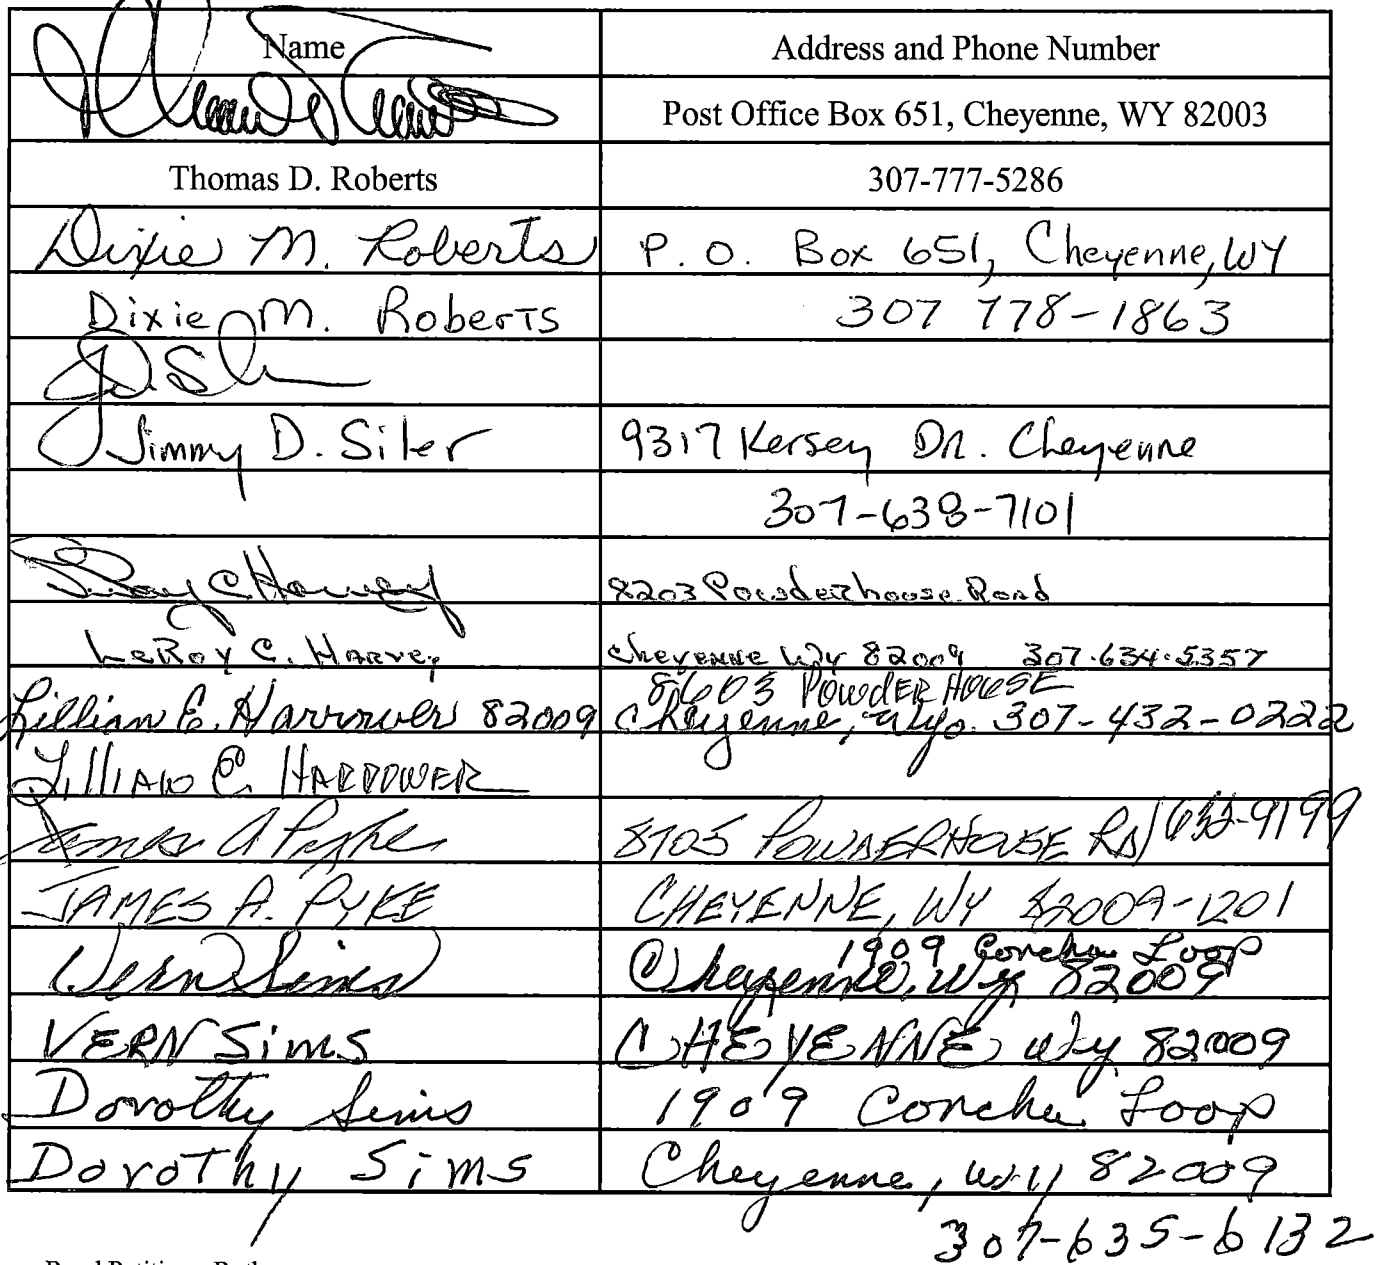 Name Address and Phone Number
Post Office Box 651, Cheyenne, WY 82003
Thomas D. Roberts 307-777-5286
Dixie M. Roberts P. O. Box 651, Cheyenne, WY
Dixie M. Roberts 307 778-1863
Jimmy D. Siler 9317 Kersey Dr. Cheyenne
307-638-7101
LeRoy C Harvey 8203 Powderhouse Road
LeRoy C. Harvey Cheyenne Wy 82009 307.634.5357
8603 POWdER HOUSE
Lillian E. Harrower 82009 Cheyenne, Wyo. 307-432-0222
LilliAN E. HARROWER
James A Pyke 8705 POWDERHOUSE RD/632-9199
JAMES A. PYKE CHEYENNE, WY 82009-1201
1909 Concha Loop
Vern Sims Cheyenne, Wy 82009
VERN SimS CHEYENNE, Wy 82009
Dorothy Sims 1909 Concha Loop
DoroThy Sims Cheyenne, Wy 82009
307-635-6132